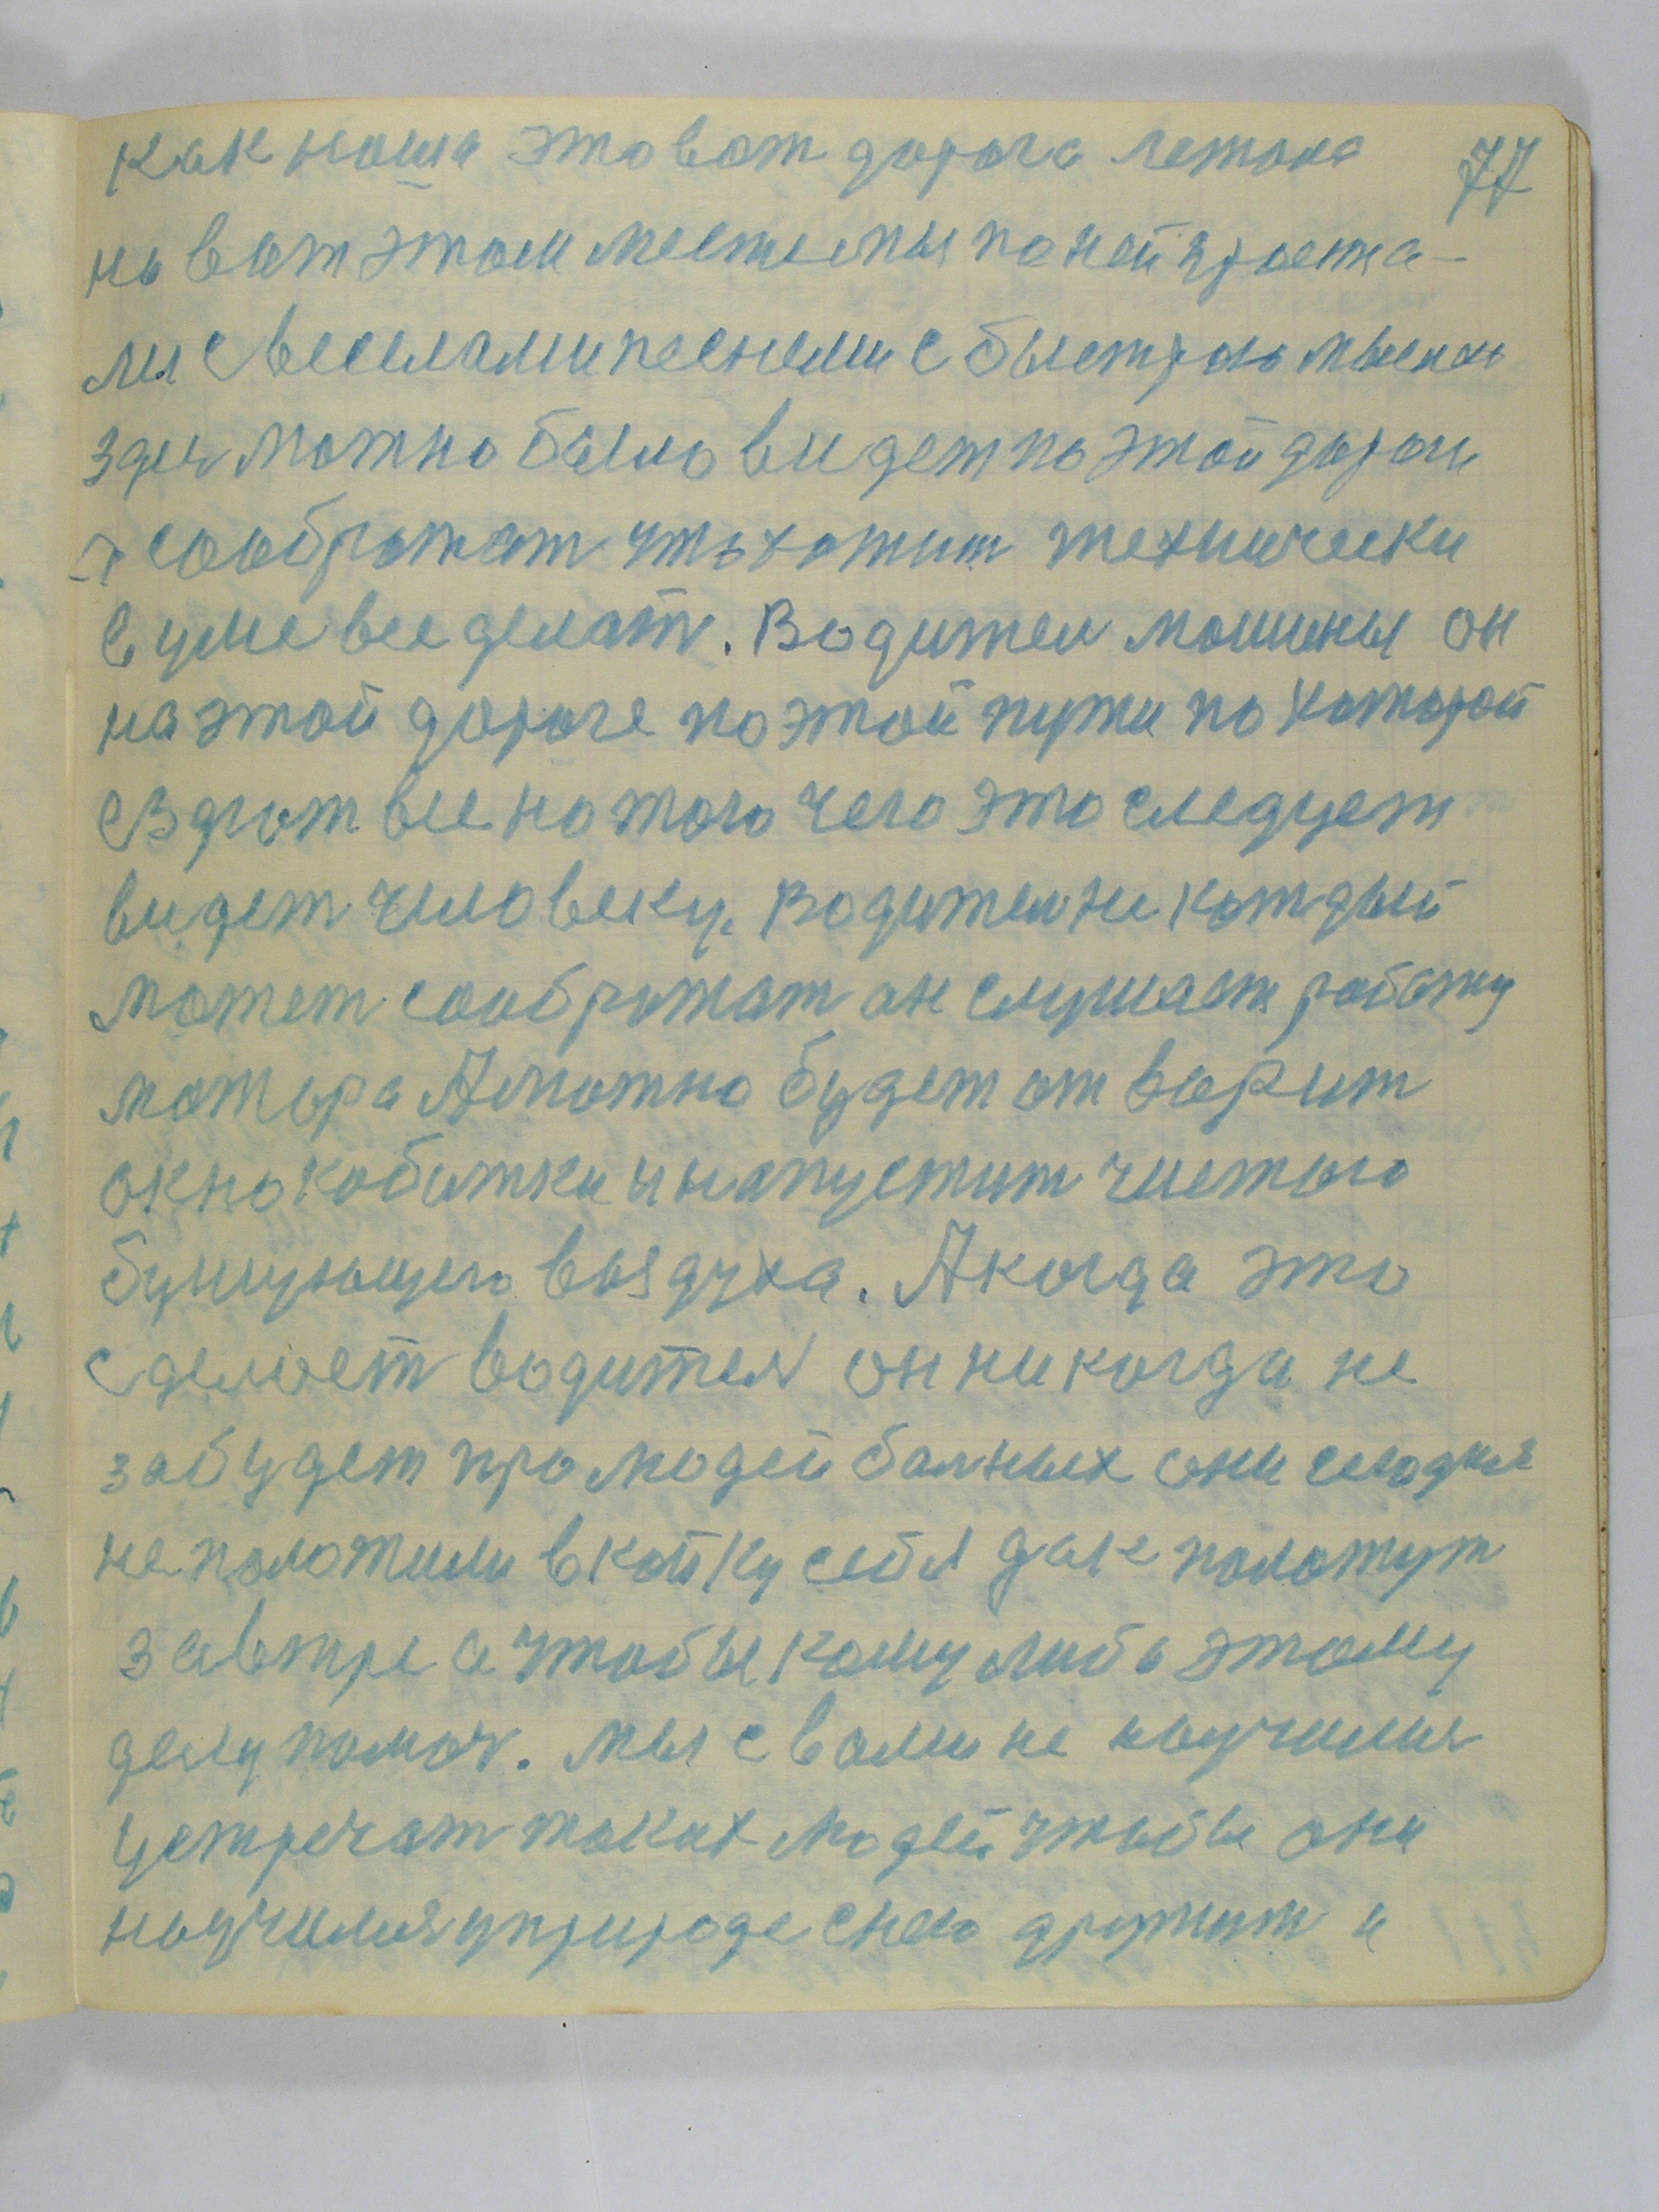 как наша это вот дорога летала 77
но вот этом месте мы по ней проежа-
ли с веселами песнеми с быстрою мыслью
здес можно было видет по этой дороги
сооброжат что хотиш технически
в уме все делат. Водител машины он
на этой дороге по этой пути по которой
ездют все но того чего это следует
видет человеку. Водител не каждый
может сооброжат он слушает работу
мотора А можно будет отворит
окно кобитки и напустит чистого
бушующего воздуха. А когда это
сделоет водител он никогда не
забудет про людей болных они сегодня
не положили в койку себя дак положут
завтре а чтобы кому либо этому
делу помоч. мы с вами не научилис
устречат таких людей чтобы они
научился у природе с нею дружит и